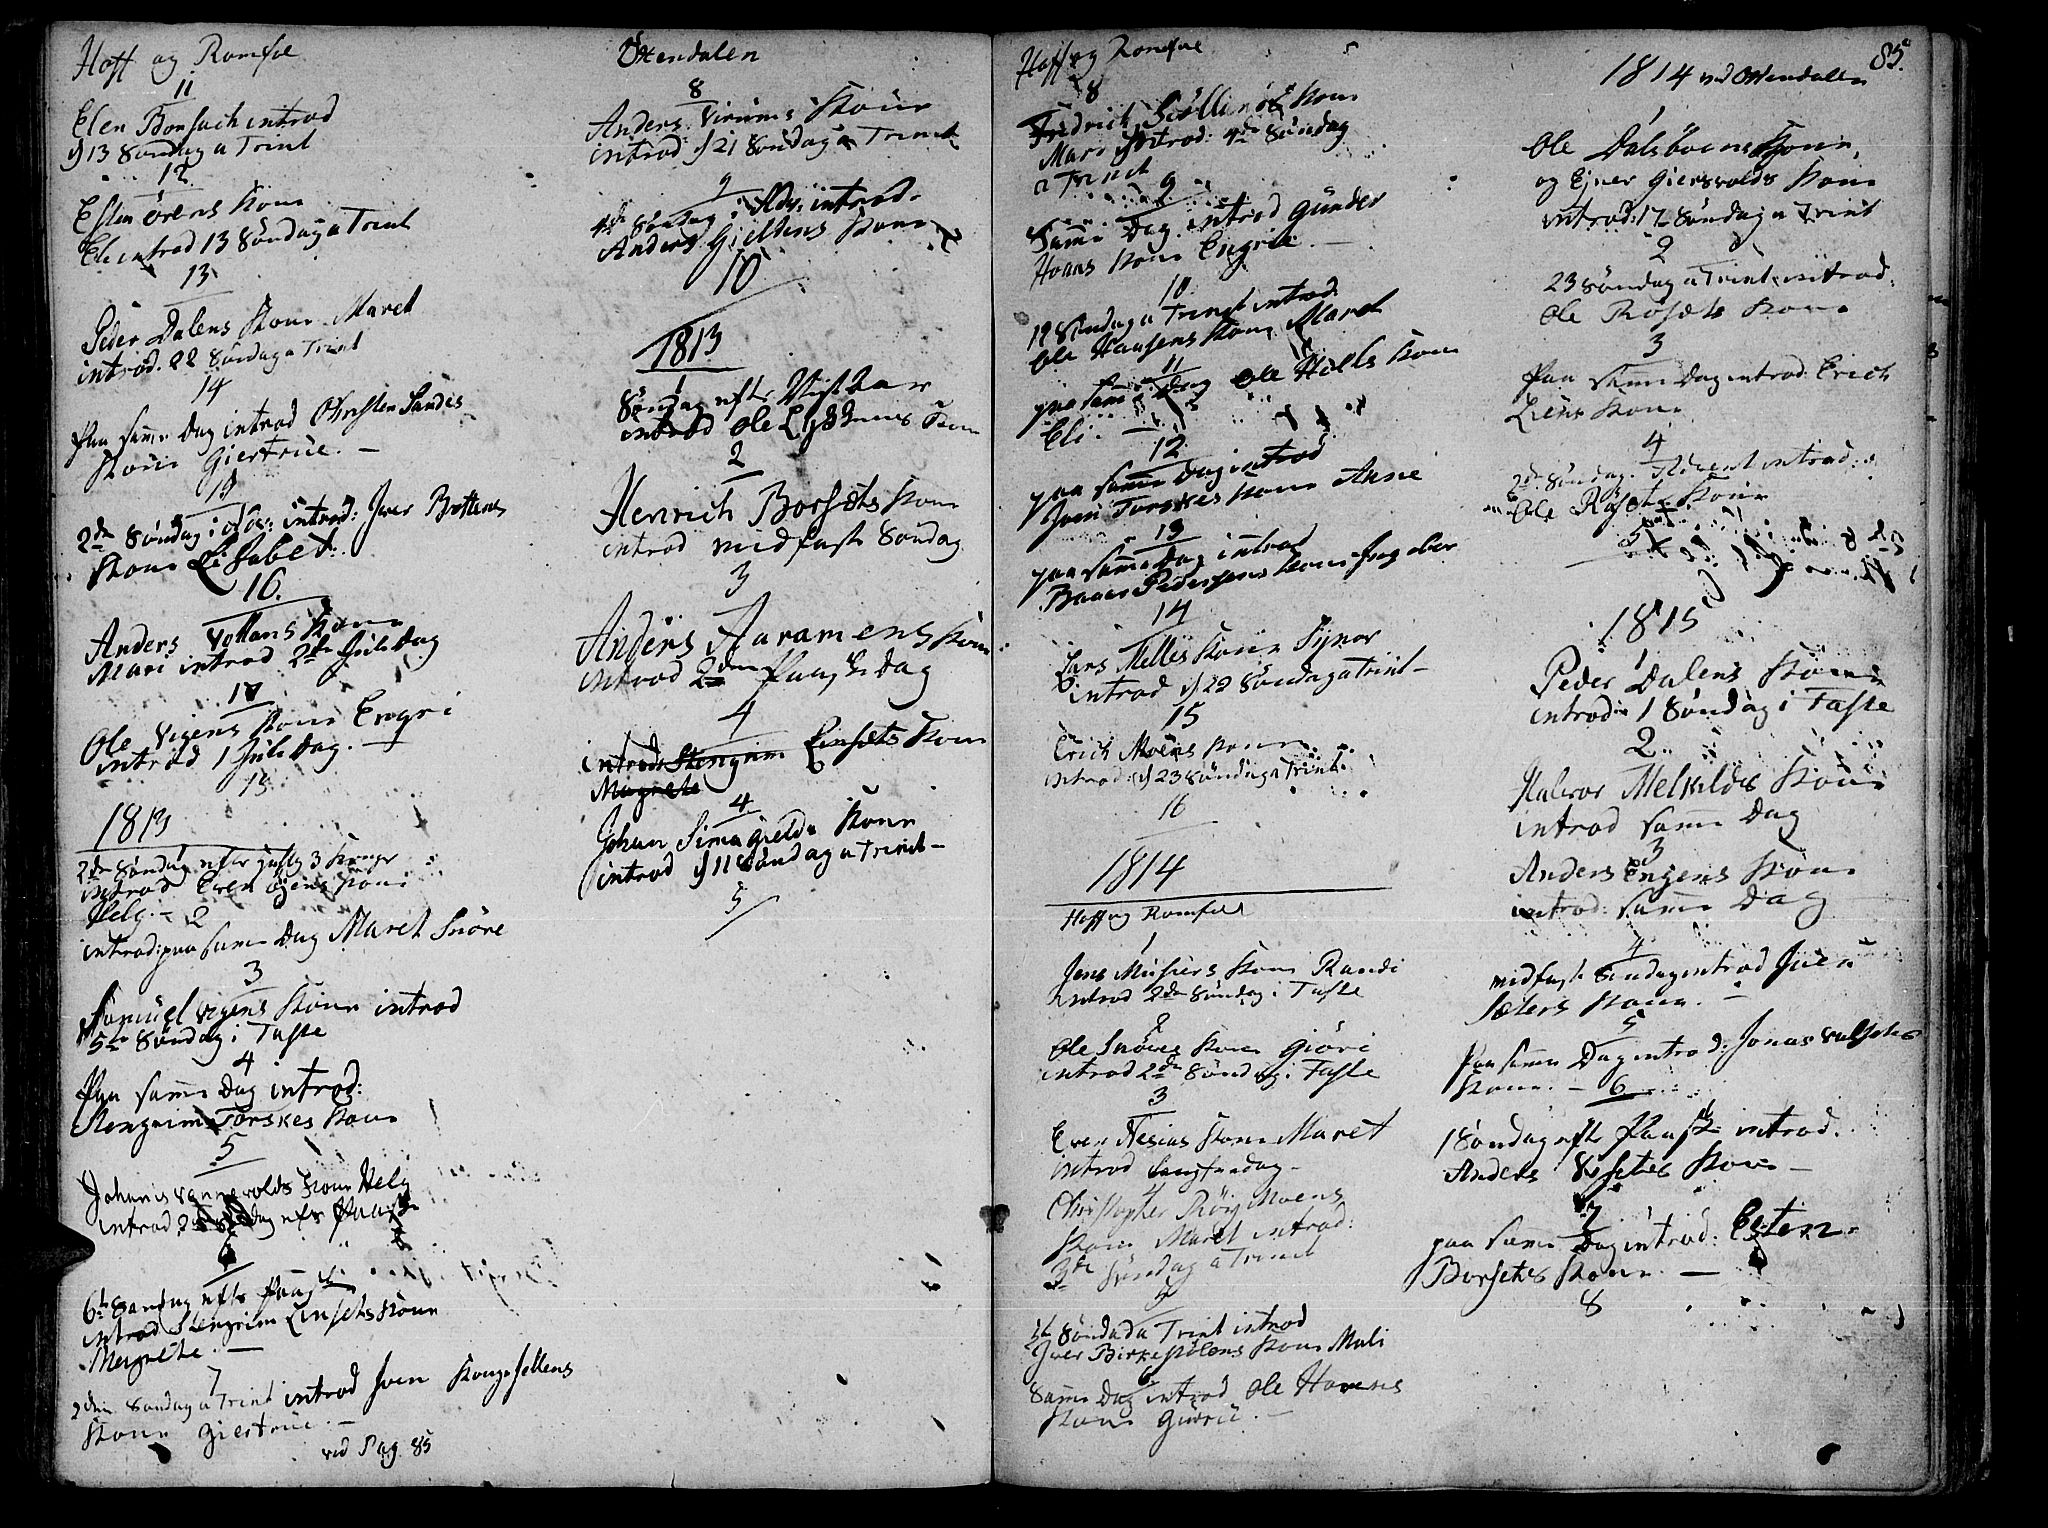 Hoff og Romfoe
11
Elen Bonsach introd
13 Søndag a Trint
12
Esten Ørens Kone
Eli introd 13 Søndag a Trint
13
Peder Dalens Kone Maret
introd. 22 Søndag a Trint
14
Paa samme Dag introd Christen Sandes
Kone Giertrue. –
15
2den Søndag i Adv: introd: Iver Bottens
Kone Lisabet.
16.
Anders Vollans Kone
Mari introd 2den Jule Dag
17
Ole Vigens Kone Engri
introd 1 Jule Dag. –
18
1813
2den Søndag efter hellig 3 Konger
introd Even Øiens Kone
Helg. –
2
introd: paa samme Dag Maret Snøre
3
Samuel Vigens Kone introd
5te Søndag i Faste
4
Paa samme Dag introd:
Stengrim Torskes Kone
5
Johanis Vennevolds Kone Helg
introd 2den Søndag eft Paaske
6
6te Søndag efter Paaske
introd Stengrim Einsets Kone
Magrete. –
7
2den Søndag a Trint introd Iven Kongshellens
Kone Giertrue. –
vid Pag. 85
Øxendalen
8
Anders Virums Kone
introd: 21 Søndag a Trint
9
4de Søndag i Adv: introd.
Anders Gieldens Kone
10
1813
1
Søndag efter
introd Ole Kone
2
Henrich Borsæts Kone
introd midfaste Søndag
3
Anders Aaramens Kone
introd 2den Paaske Dag
4
introd Stengrim Einsets Kone
Magrete
4
Johan Simagields Kone
introd 11 Søndag a Trint –
5
Hoff og Romfoe
8
Fridrich Kone
Mari introd: 4de Søndag
a Trint
9
Samme Dag introd Gunder
Hoans Kone Engrie. –
10
19 Søndag a Trinit introd:
Ole Hansens Kone Maret
11
paa samme Dag Ole Hells Kone
Eli. –
12
paa samme Dag introd
Joen Torskes Kone Anne
13
paa samme Dag introd
Baaer Pedersens Kone Ingebor
14
Lars Melles Kone Synør
introd 22 Søndag a Trint –
15
Erich Moens Kone
introd: 23 Søndag a Trint.
16
1814
Hoff og Romfoe
1
Jens Musiers Kone Randi
introd 2den Søndag i Faste
2
Ole Snøves Kone Giøri
introd 2den Søndag i Faste
3
Even Nesias Kone Maret
introd Langfredag –
4
Christopher Røy Moens
Kone Maret introd:
3de Søndag a Trinit
5
Søndag a Trint introd
Iver Birkehølens Kone Mali
6
Samme Dag introd Ole Hovens
Kone Guroe. –
85.
1814 ved Øxendalen
Ole Dalsbøens Kone,
og Ejner Giersvolds Kone
introd: 17 Søndag a Trint
2
23 Søndag a Trint introd:
Ole Røsets Kone
3
Paa samme Dag introd: Erich
Liens Kone
4
2den Søndag i Advent introd:
Ole Røset Kone
5
1815
1
Peder Dalens Kone
introd: 1 Søndag i Faste
2
Halvor Melkilds Kone
introd samme Dag
3
Anders Engens Kone
introd: samme Dag
4
midfaste Søndag introd Iver
Sæters Kone. –
5
Paa samme Dag introd: Jonas
Kone. –
6
1 Søndag efter Paaske introd.
Anders Kone –
7
paa samme Dag introd: Esten
Borsets Kone –
8